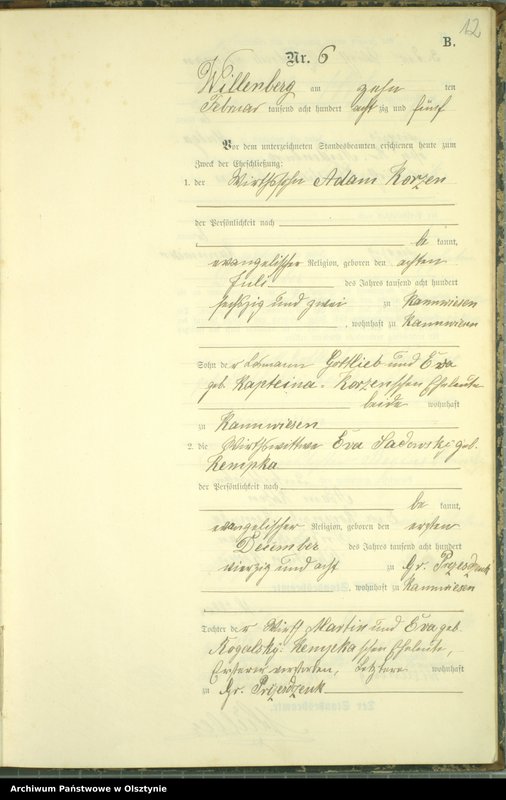 12
B.
Nr. 6
Willenberg am zehn ten
Februar tausend acht hundert acht zig und fünf
Vor dem unterzeichneten Standesbeamten erschienen heute zum
Zweck der Eheschließung:
1. der Wirthssohn Adam Korzen
der Persönlichkeit nach
be kannt,
evangelischer Religion, geboren den achten
Juli des Jahres tausend acht hundert
sechszig und zwei zu Kannwiesen
, wohnhaft zu Kannwiesen
Sohn der Losmann Gottlieb und Eva
geb. Kapteina - Korzenschen Eheleute
beide wohnhaft
zu Kannwiesen
2. die Wirthswittwe Eva Sadowski geb.
Kempka
der Persönlichkeit nach
be kannt,
evangelischer Religion, geboren den ersten
Dezember des Jahres tausend acht hundert
vierzig und acht zu Gr. Przesdzenk
, wohnhaft zu Kannwiesen
Tochter der Wirth Martin und Eva geb.
Rogalski Kempka'schen Eheleute,
Ersterer verstorben, Letztere wohnhaft
zu Gr. Przesdzenk
Archiwum Państwowe w Olsztynie